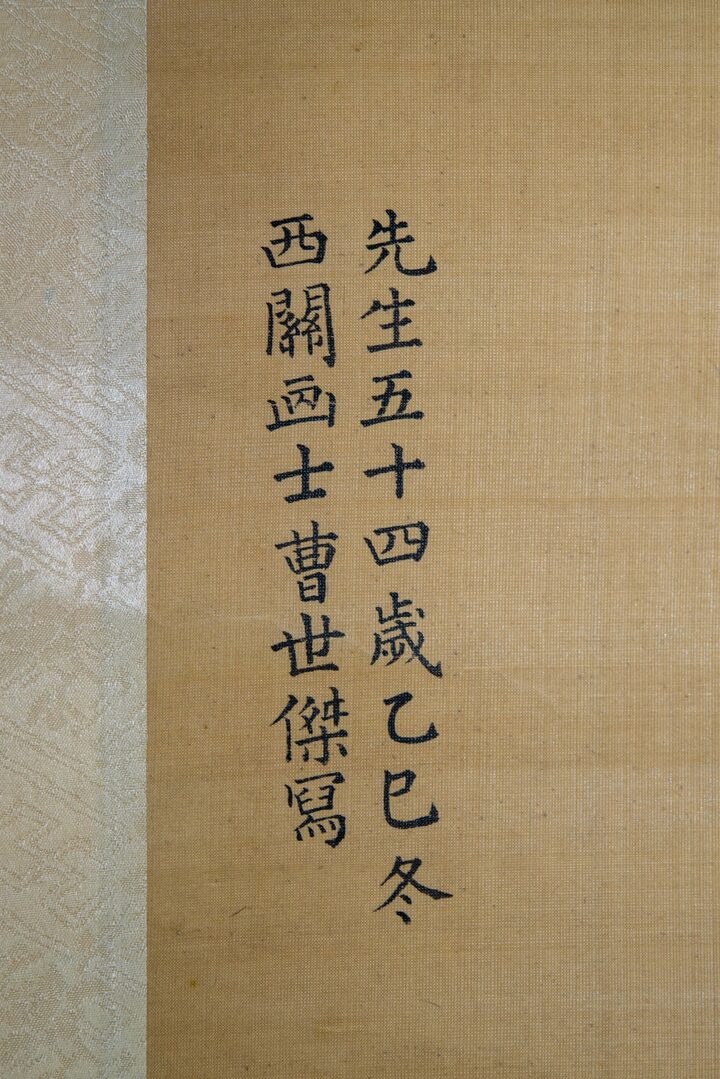 先生五十四歲乙巳冬
西關画士曹世傑寫